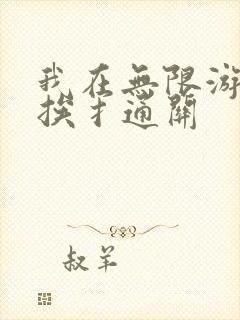 我在無限游
挨扌通關
叔羊